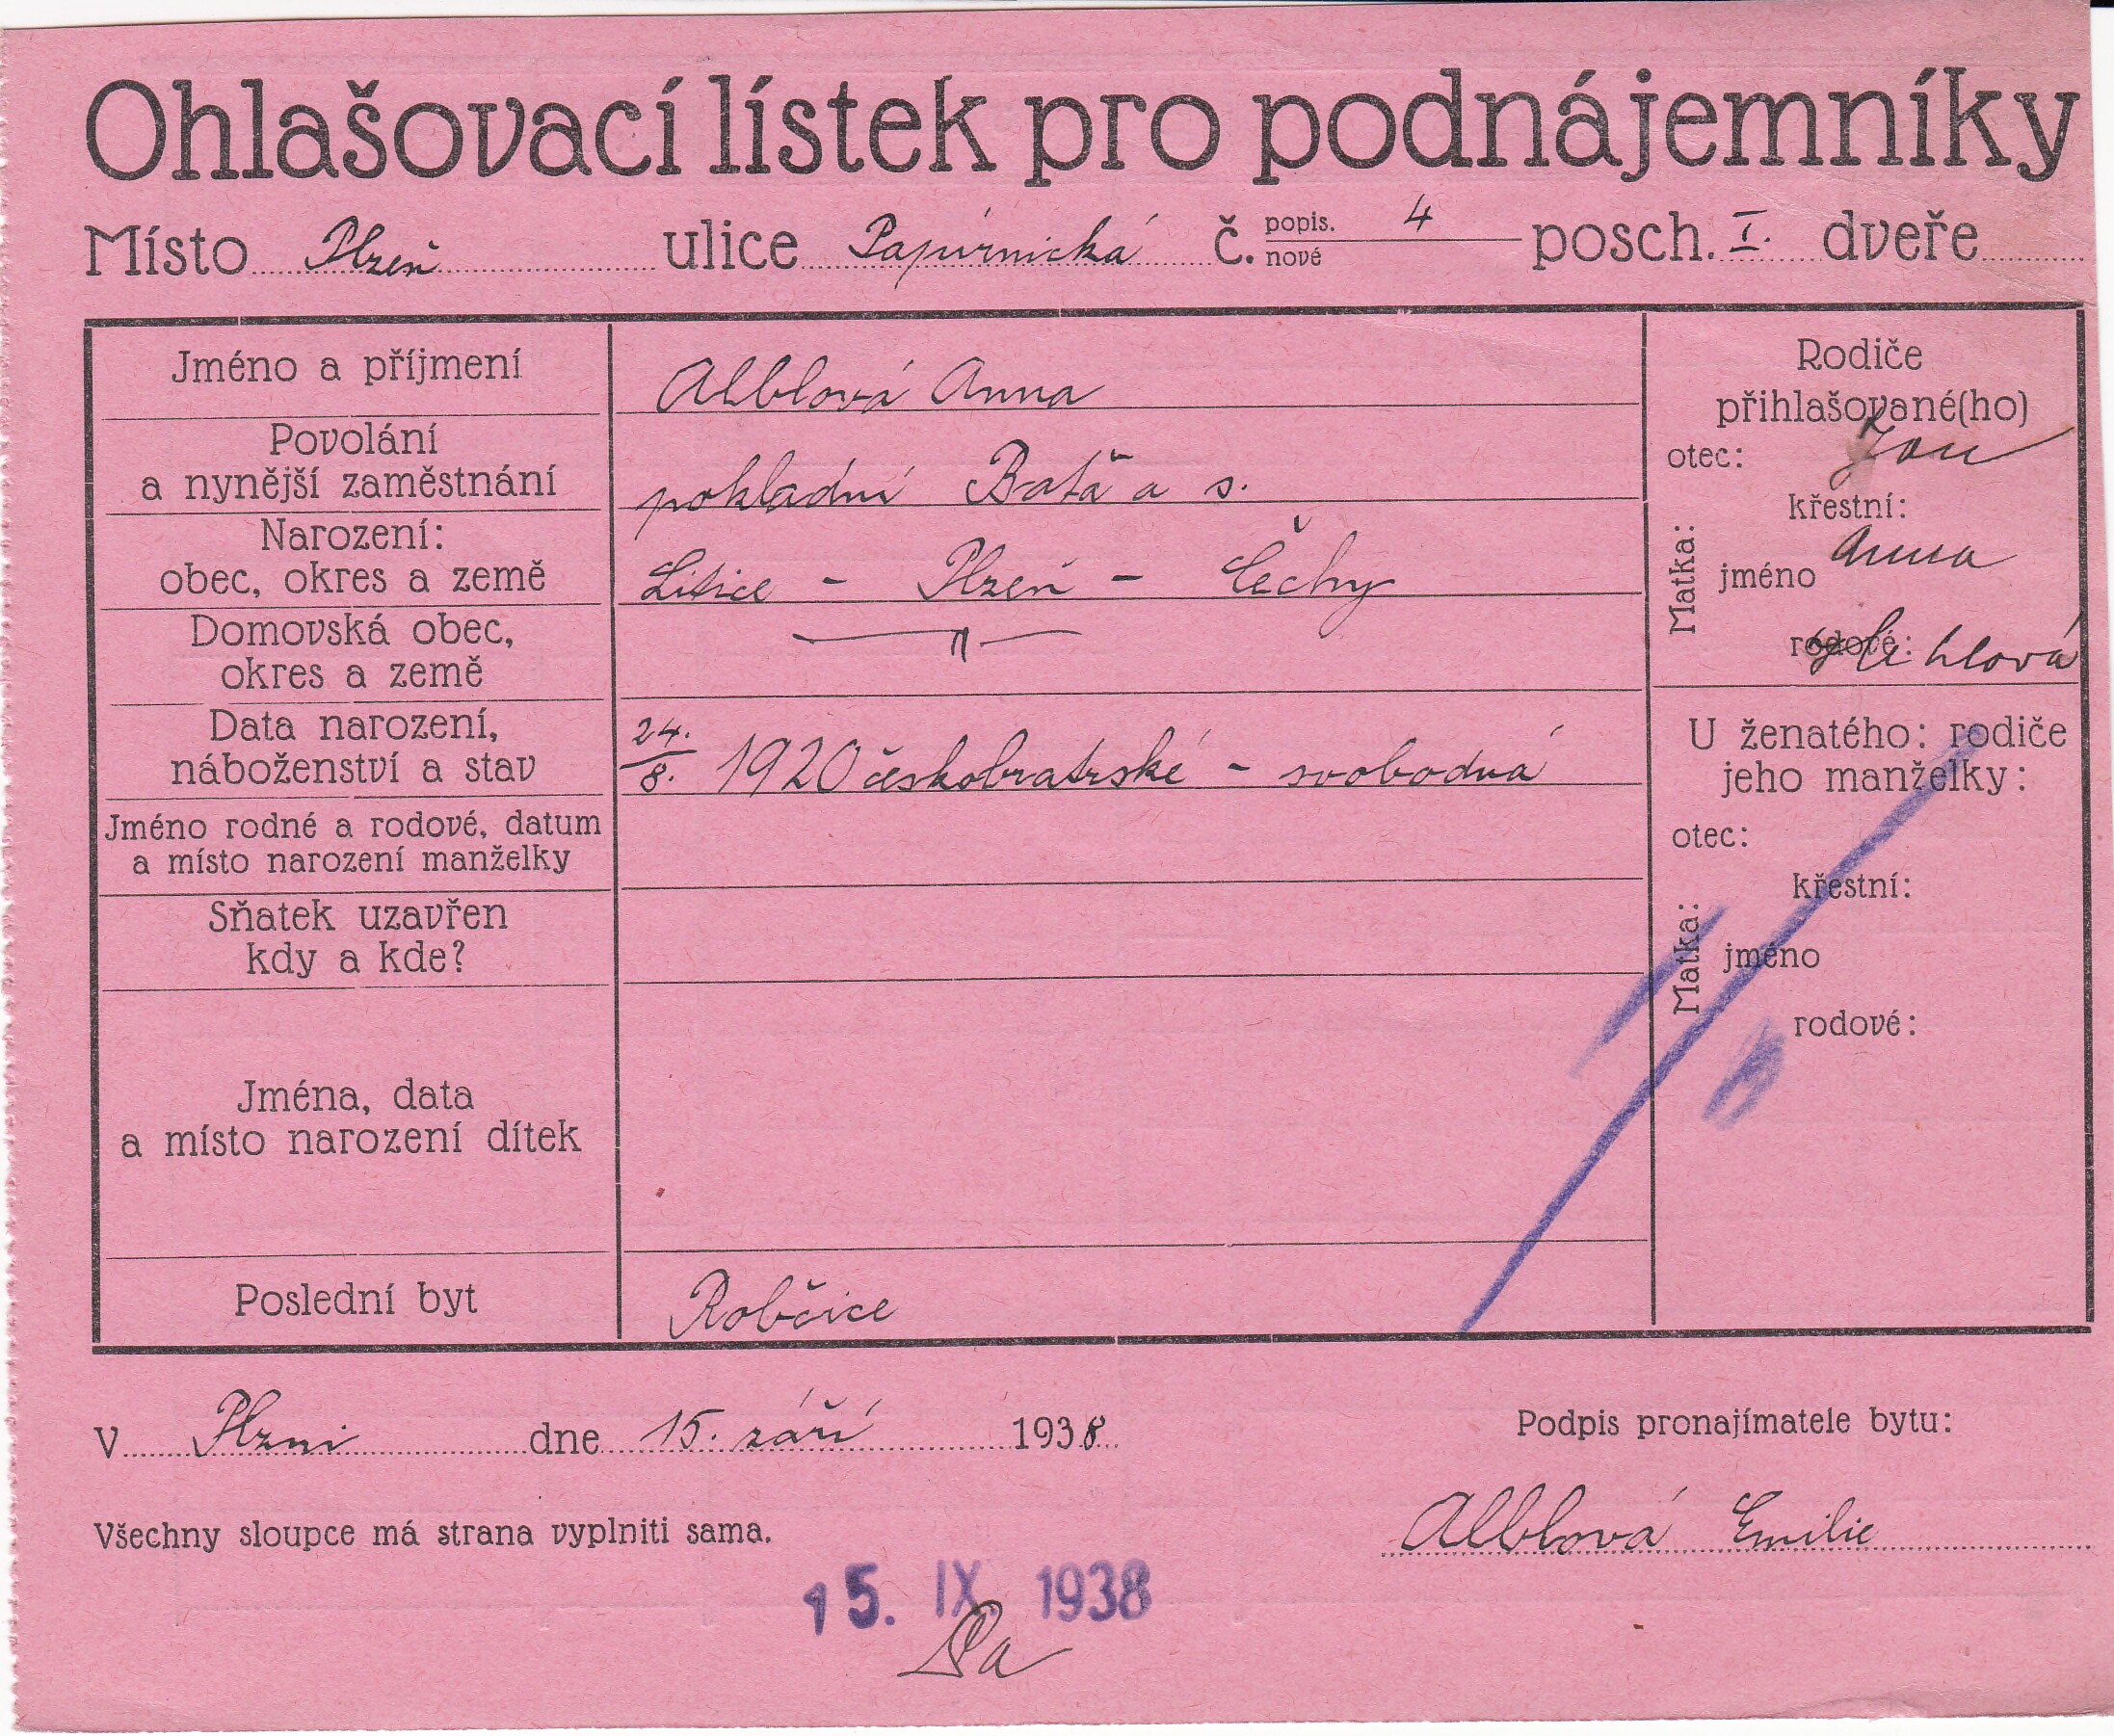 Ohlašovací lístek pro podnájemníky
Místo Plzeň ulice Papírnická č. popis. nové 4 posch. I. dveře
Jméno a příjmení Alblová Anna
Povolání
a nynější zaměstnání pokladní Baťa a s.
Narození:
obec, okres a země Litice - Plzeň - Čechy
Domovská obec,
okres a země — 〃 —
Data narození,
náboženství a stav 24./8. 1920 českobratrské - svobodná
Jméno rodné a rodové, datum
a místo narození manželky
Sňatek uzavřen
kdy a kde?
Jména, data
a místo narození dítek
Poslední byt Robčice
Rodiče
přihlašované(ho)
otec: Jan
Matka:
křestní:
jméno Anna
rodové:
U ženatého: rodiče
jeho manželky:
otec:
Matka:
křestní:
jméno
rodové:
V Plzni dne 15. září 1938
Podpis pronajímatele bytu:
Všechny sloupce má strana vyplniti sama.
Alblová Emilie
15. IX. 1938